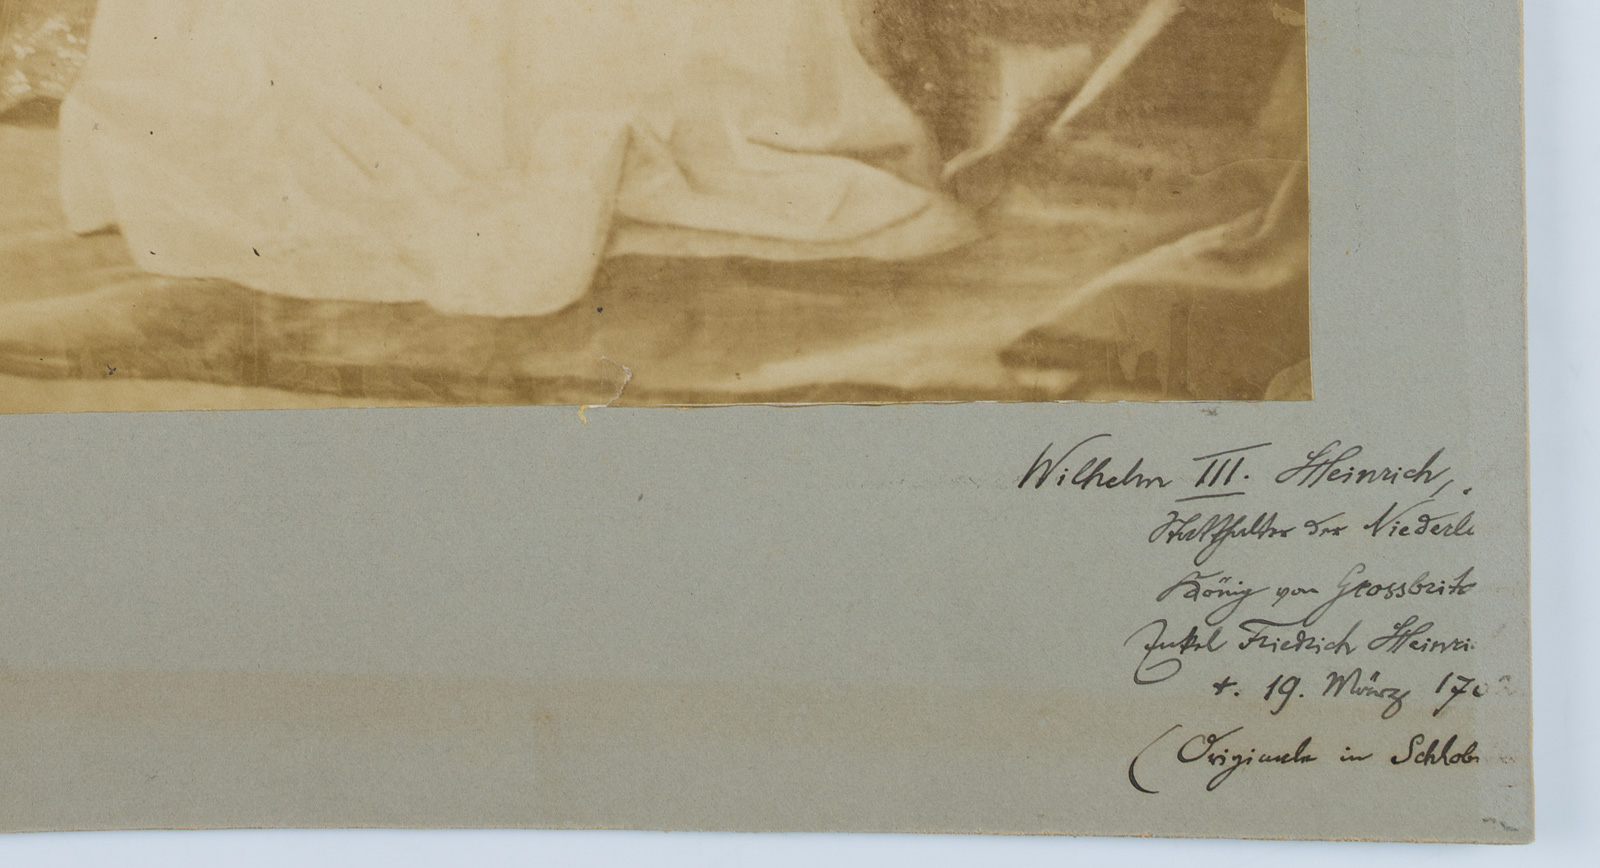 Wilhelm III. Heinrich,
Statthalter der Niederla
König von Grossbrita
Enkel Friedrich Heinri
+. 19. März 1702
(Originale in Schloß